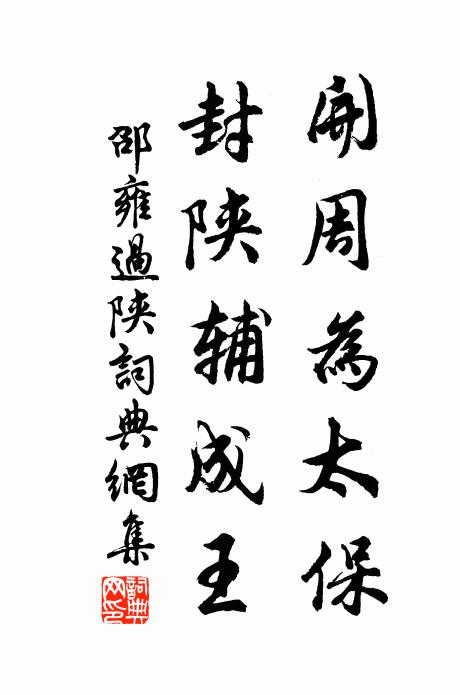 開周為太保
封陕辅成王
邵雍過陕詞典網集
詞典网印